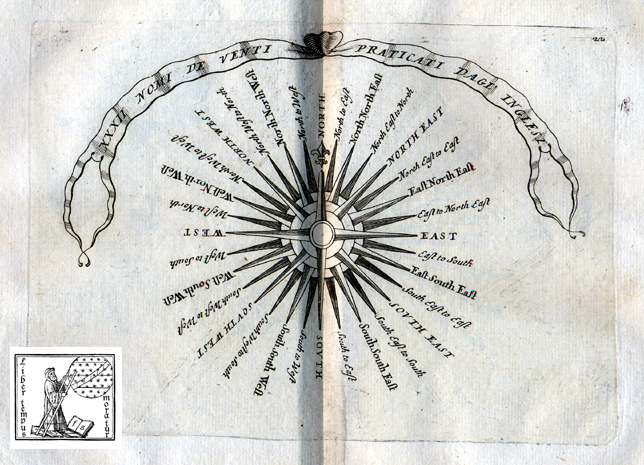 XXXII NOMI DE VENTI PRATICATI DAGI INGLESI
NORTH
North to Eaſt
North North Eaſt
North Eaſt to North
NORTH EAST
North Eaſt to Eaſt
Eaſt North Eaſt
Eaſt to North Eaſt
EAST
Eaſt to South
Eaſt South Eaſt
South Eaſt to Eaſt
SOUTH EAST
South Eaſt to South
South South Eaſt
South to Eaſt
SOVTH
South to Weſt
South South Weſt
South Weſt to South
SOVTH WEST
South Weſt to Weſt
Weſt South Weſt
Weſt to South
WEST
Weſt to North
Weſt North Weſt
North Weſt to Weſt
NORTH WEST
North Weſt to North
North North Weſt
North to Weſt
Liber tempus
moratur